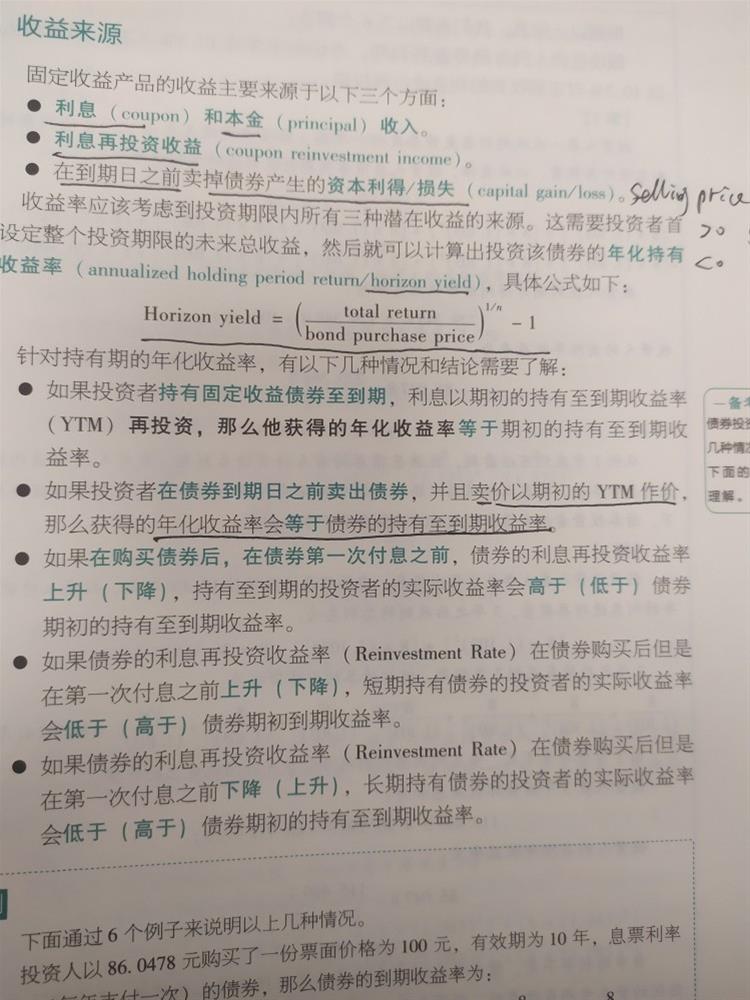 收益来源
固定收益产品的收益主要来源于以下三个方面：
● 利息（coupon）和本金（principal）收入。
● 利息再投资收益（coupon reinvestment income）。
● 在到期日之前卖掉债券产生的资本利得/损失（capital gain/loss）。selling price
收益率应该考虑到投资期限内所有三种潜在收益的来源。这需要投资者首 >0
设定整个投资期限的未来总收益，然后就可以计算出投资该债券的年化持有 <0
收益率（annualized holding period return/horizon yield），具体公式如下：
Horizon yield = (total return / bond purchase price)^1/n − 1
针对持有期的年化收益率，有以下几种情况和结论需要了解：
● 如果投资者持有固定收益债券至到期，利息以期初的持有至到期收益率
（YTM）再投资，那么他获得的年化收益率等于期初的持有至到期收
益率。
● 如果投资者在债券到期日之前卖出债券，并且卖价以期初的 YTM 作价，
那么获得的年化收益率会等于债券的持有至到期收益率。
● 如果在购买债券后，在债券第一次付息之前，债券的利息再投资收益率
上升（下降），持有至到期的投资者的实际收益率会高于（低于）债券
期初的持有至到期收益率。
● 如果债券的利息再投资收益率（Reinvestment Rate）在债券购买后但是
在第一次付息之前上升（下降），短期持有债券的投资者的实际收益率
会低于（高于）债券期初到期收益率。
● 如果债券的利息再投资收益率（Reinvestment Rate）在债券购买后但是
在第一次付息之前下降（上升），长期持有债券的投资者的实际收益率
会低于（高于）债券期初的持有至到期收益率。
一备考
债券投资
几种情况
下面的
理解。
下面通过 6 个例子来说明以上几种情况。
投资人以 86.0478 元购买了一份票面价格为 100 元，有效期为 10 年，息票利率
每年支付一次）的债券，那么债券的到期收益率为：
8 8